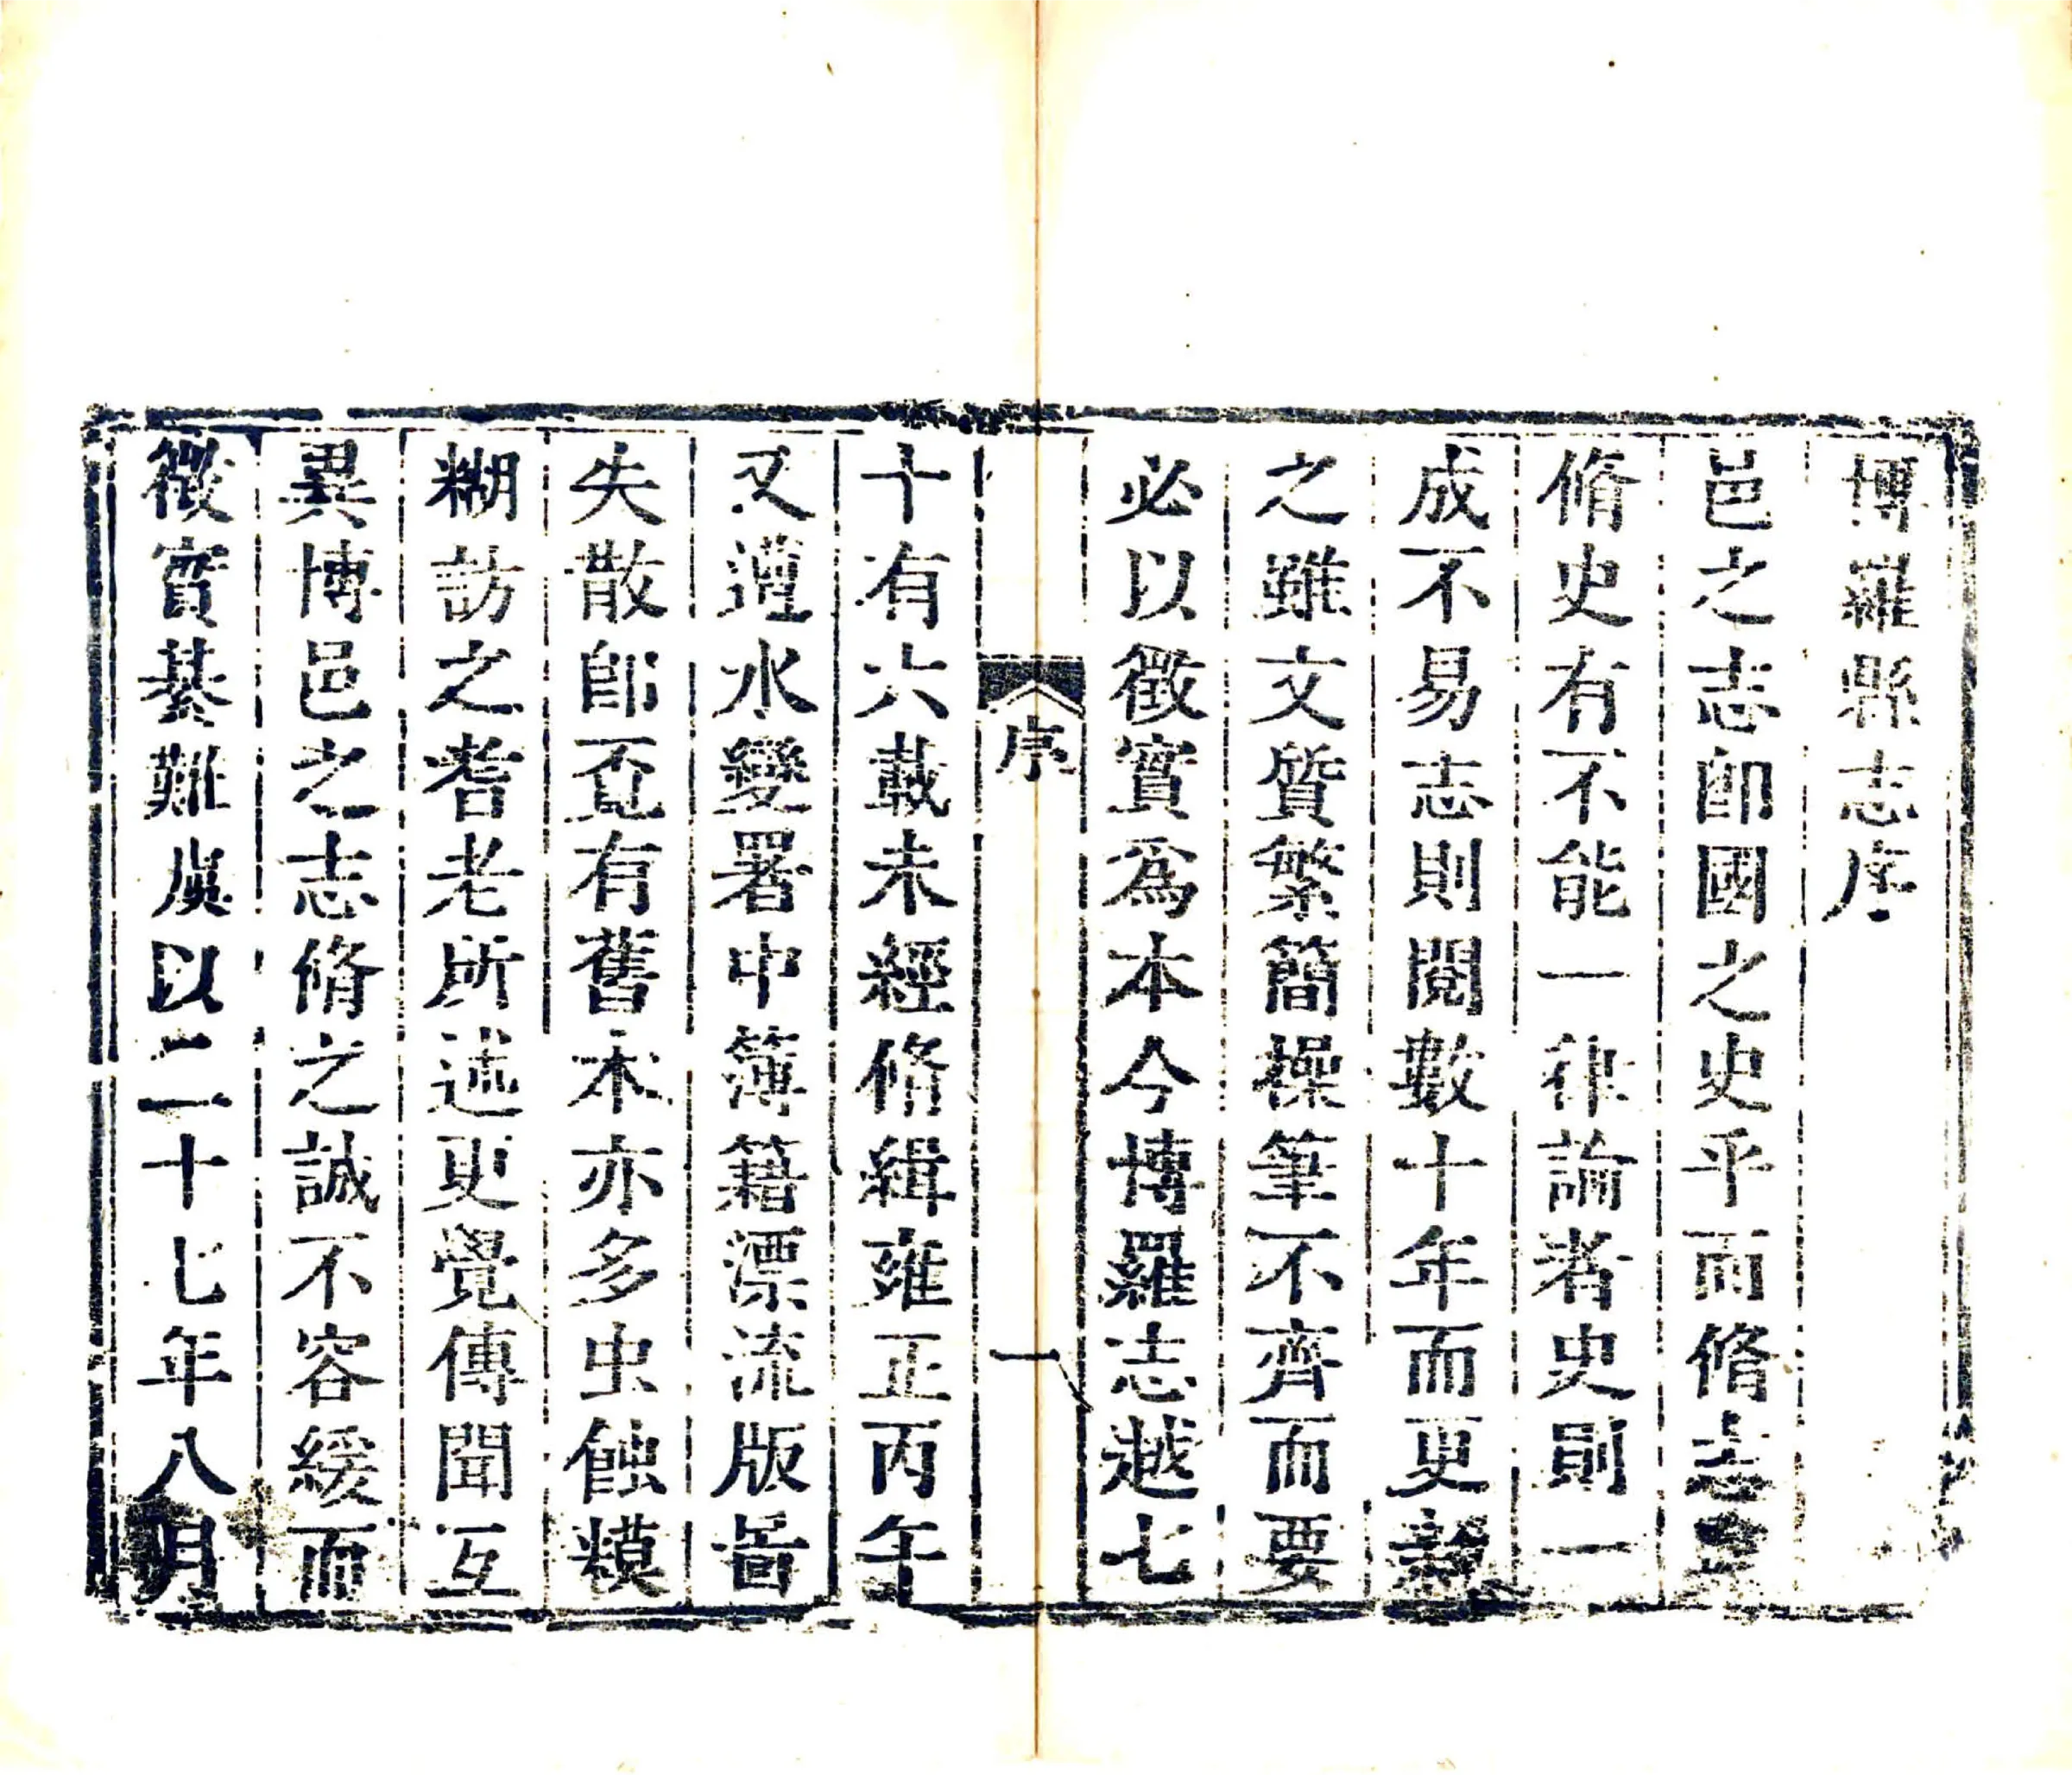 博羅縣志序
邑之志卽國之史乎而脩志
脩史有不能一律論者史則一
成不易志則閱數十年而更新
之雖文質繁簡操筆不齊而要
必以徵實爲本今博羅志越七
序 一
十有六載未經脩緝雍正丙午
又遭水變署中簿籍漂流版啚
失散卽覔有舊本亦多虫蝕糢
糊訪之耆老所述更覺傳聞互
異博邑之志脩之誠不容緩而
徵實綦難虞以二十七年八月